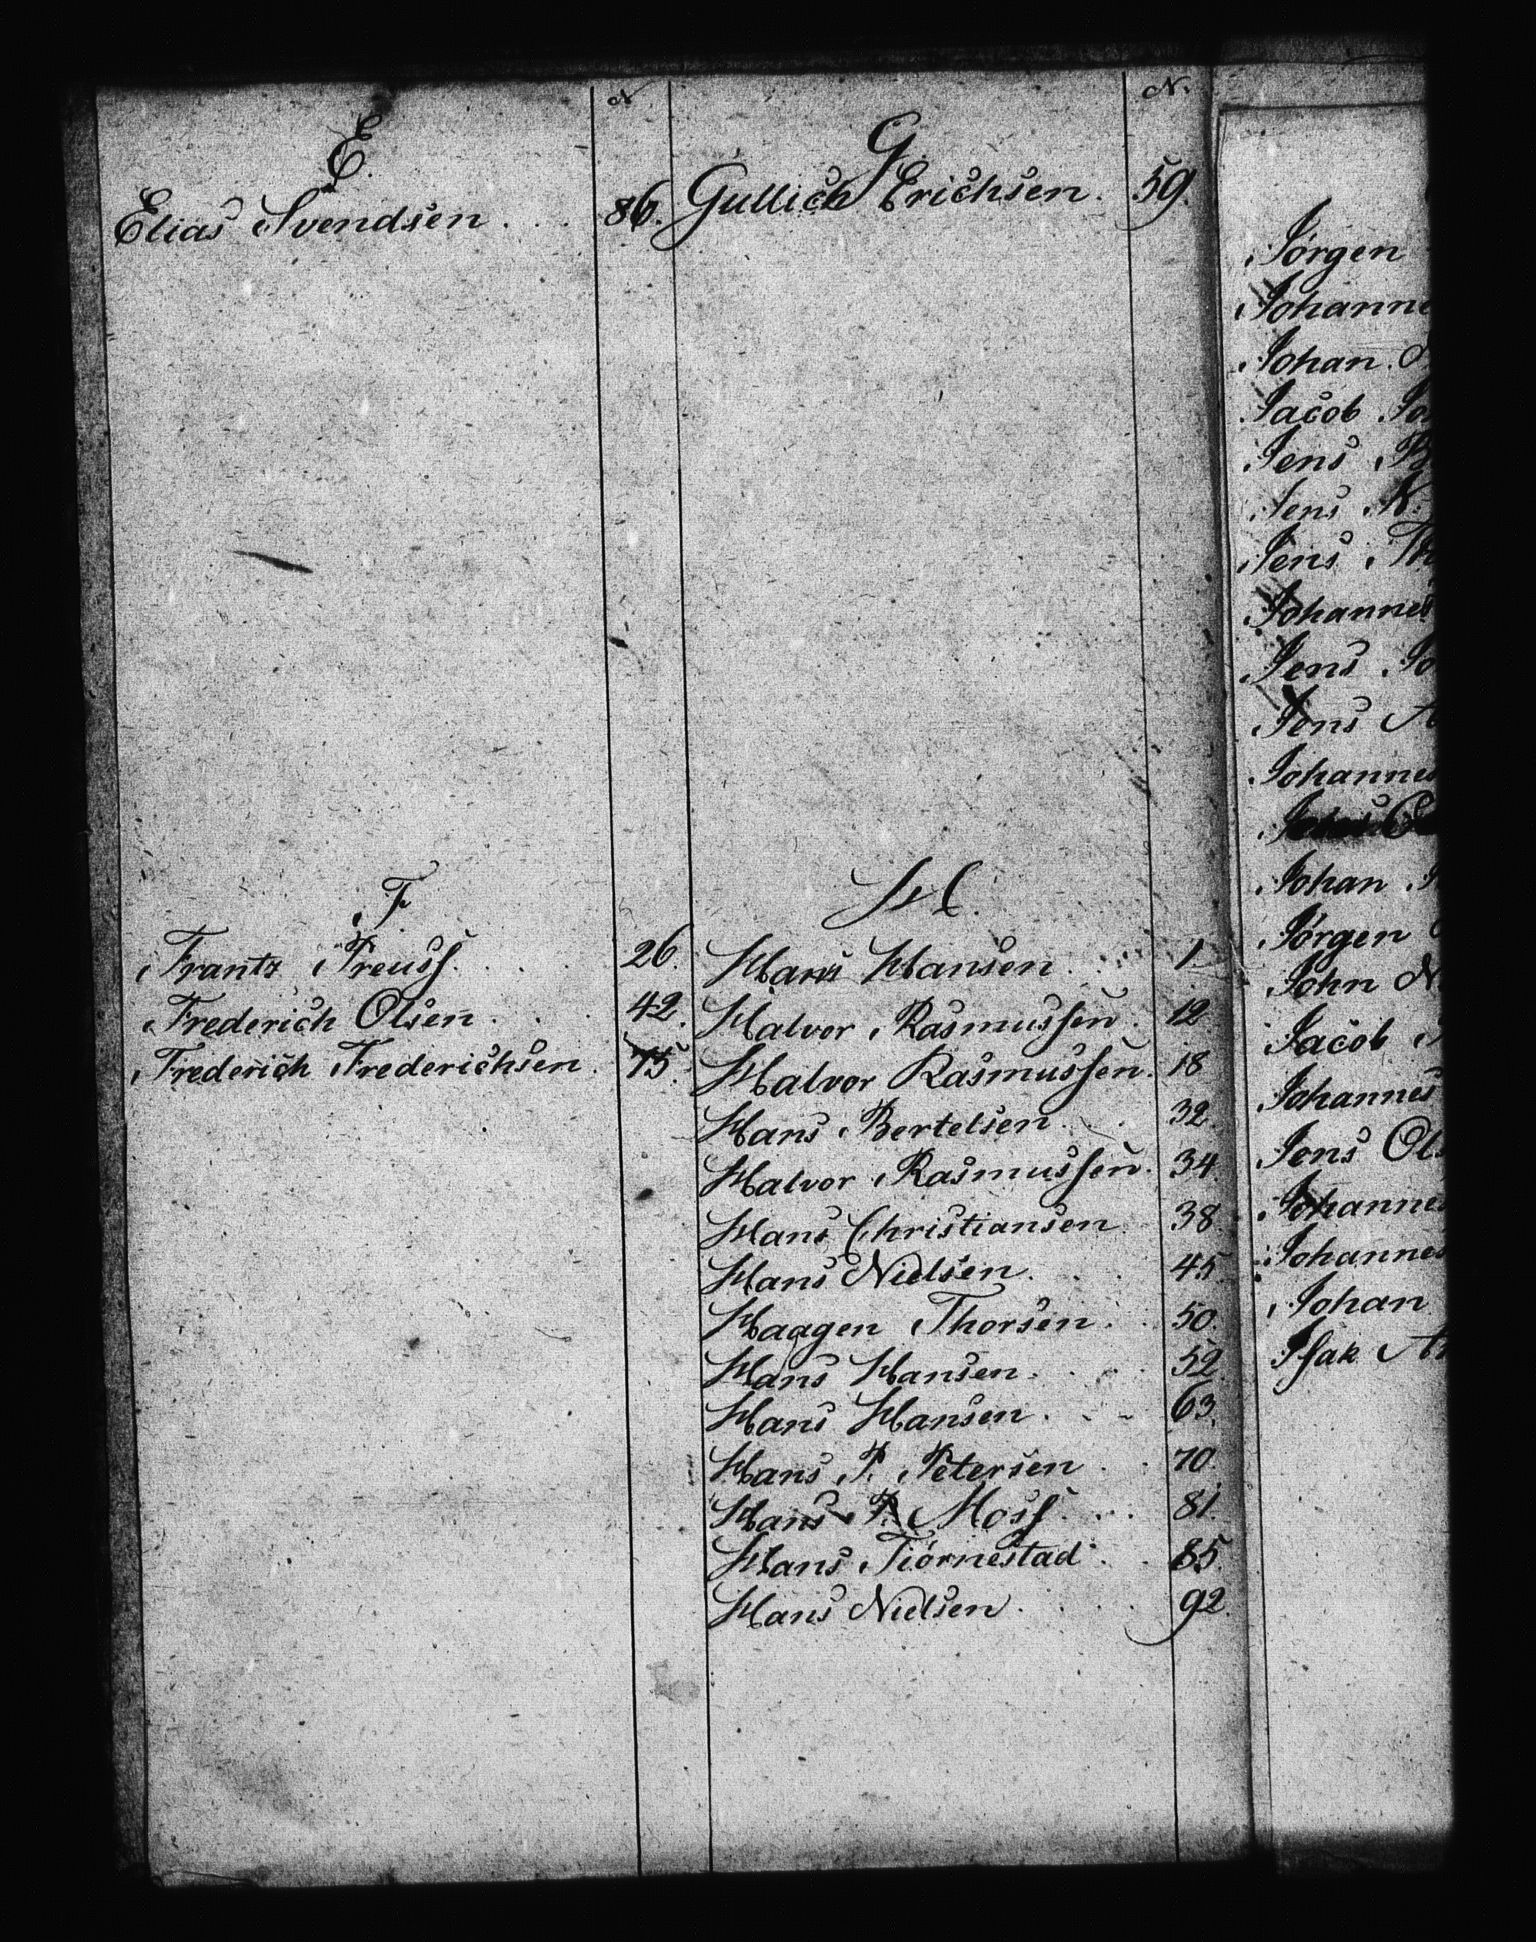 N
E.
Elias Svendsen . . . 86.
F
Frantz Preuss . . . 26.
Frederich Olsen . . . 42.
Frederich Frederichsen . 75.
N.
G
Gullich Erichsen . 59.
H.
Hans Hansen . . . 1
Halvor Rasmussen . 12
Halvor Rasmussen . 18
Hans Bertelsen . . 32.
Halvor Rasmussen . 34.
Hans Christiansen 38.
Hans Nielsen . . . 45
Haagen Thorsen . . 50.
Hans Hansen . . . 52.
Hans Hansen . . . 63.
Hans P. Petersen . . 70
Hans P. Moss . . . 81.
Hans Tiørnestad . . 85.
Hans Nielsen . . . 92.
Jørgen
Johanne
Johan
Jacob Jo
Jens
Jens N.
Jens Th
Johannes
Jens Jo
Jens A
Johannes
Johan
Jørgen
John N
Jacob
Johannes
Jens Ols
Johannes
Johannes
Johan
Isak A